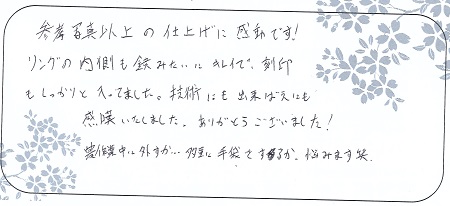 参考写真以上の仕上げに感動です!
リングの内側も鏡みたいにキレイで、刻印
もしっかりと入ってました。技術にも出来ばえにも
感嘆いたしました。ありがとうございました!
作業中に外すか… 手袋をするか、悩みます笑